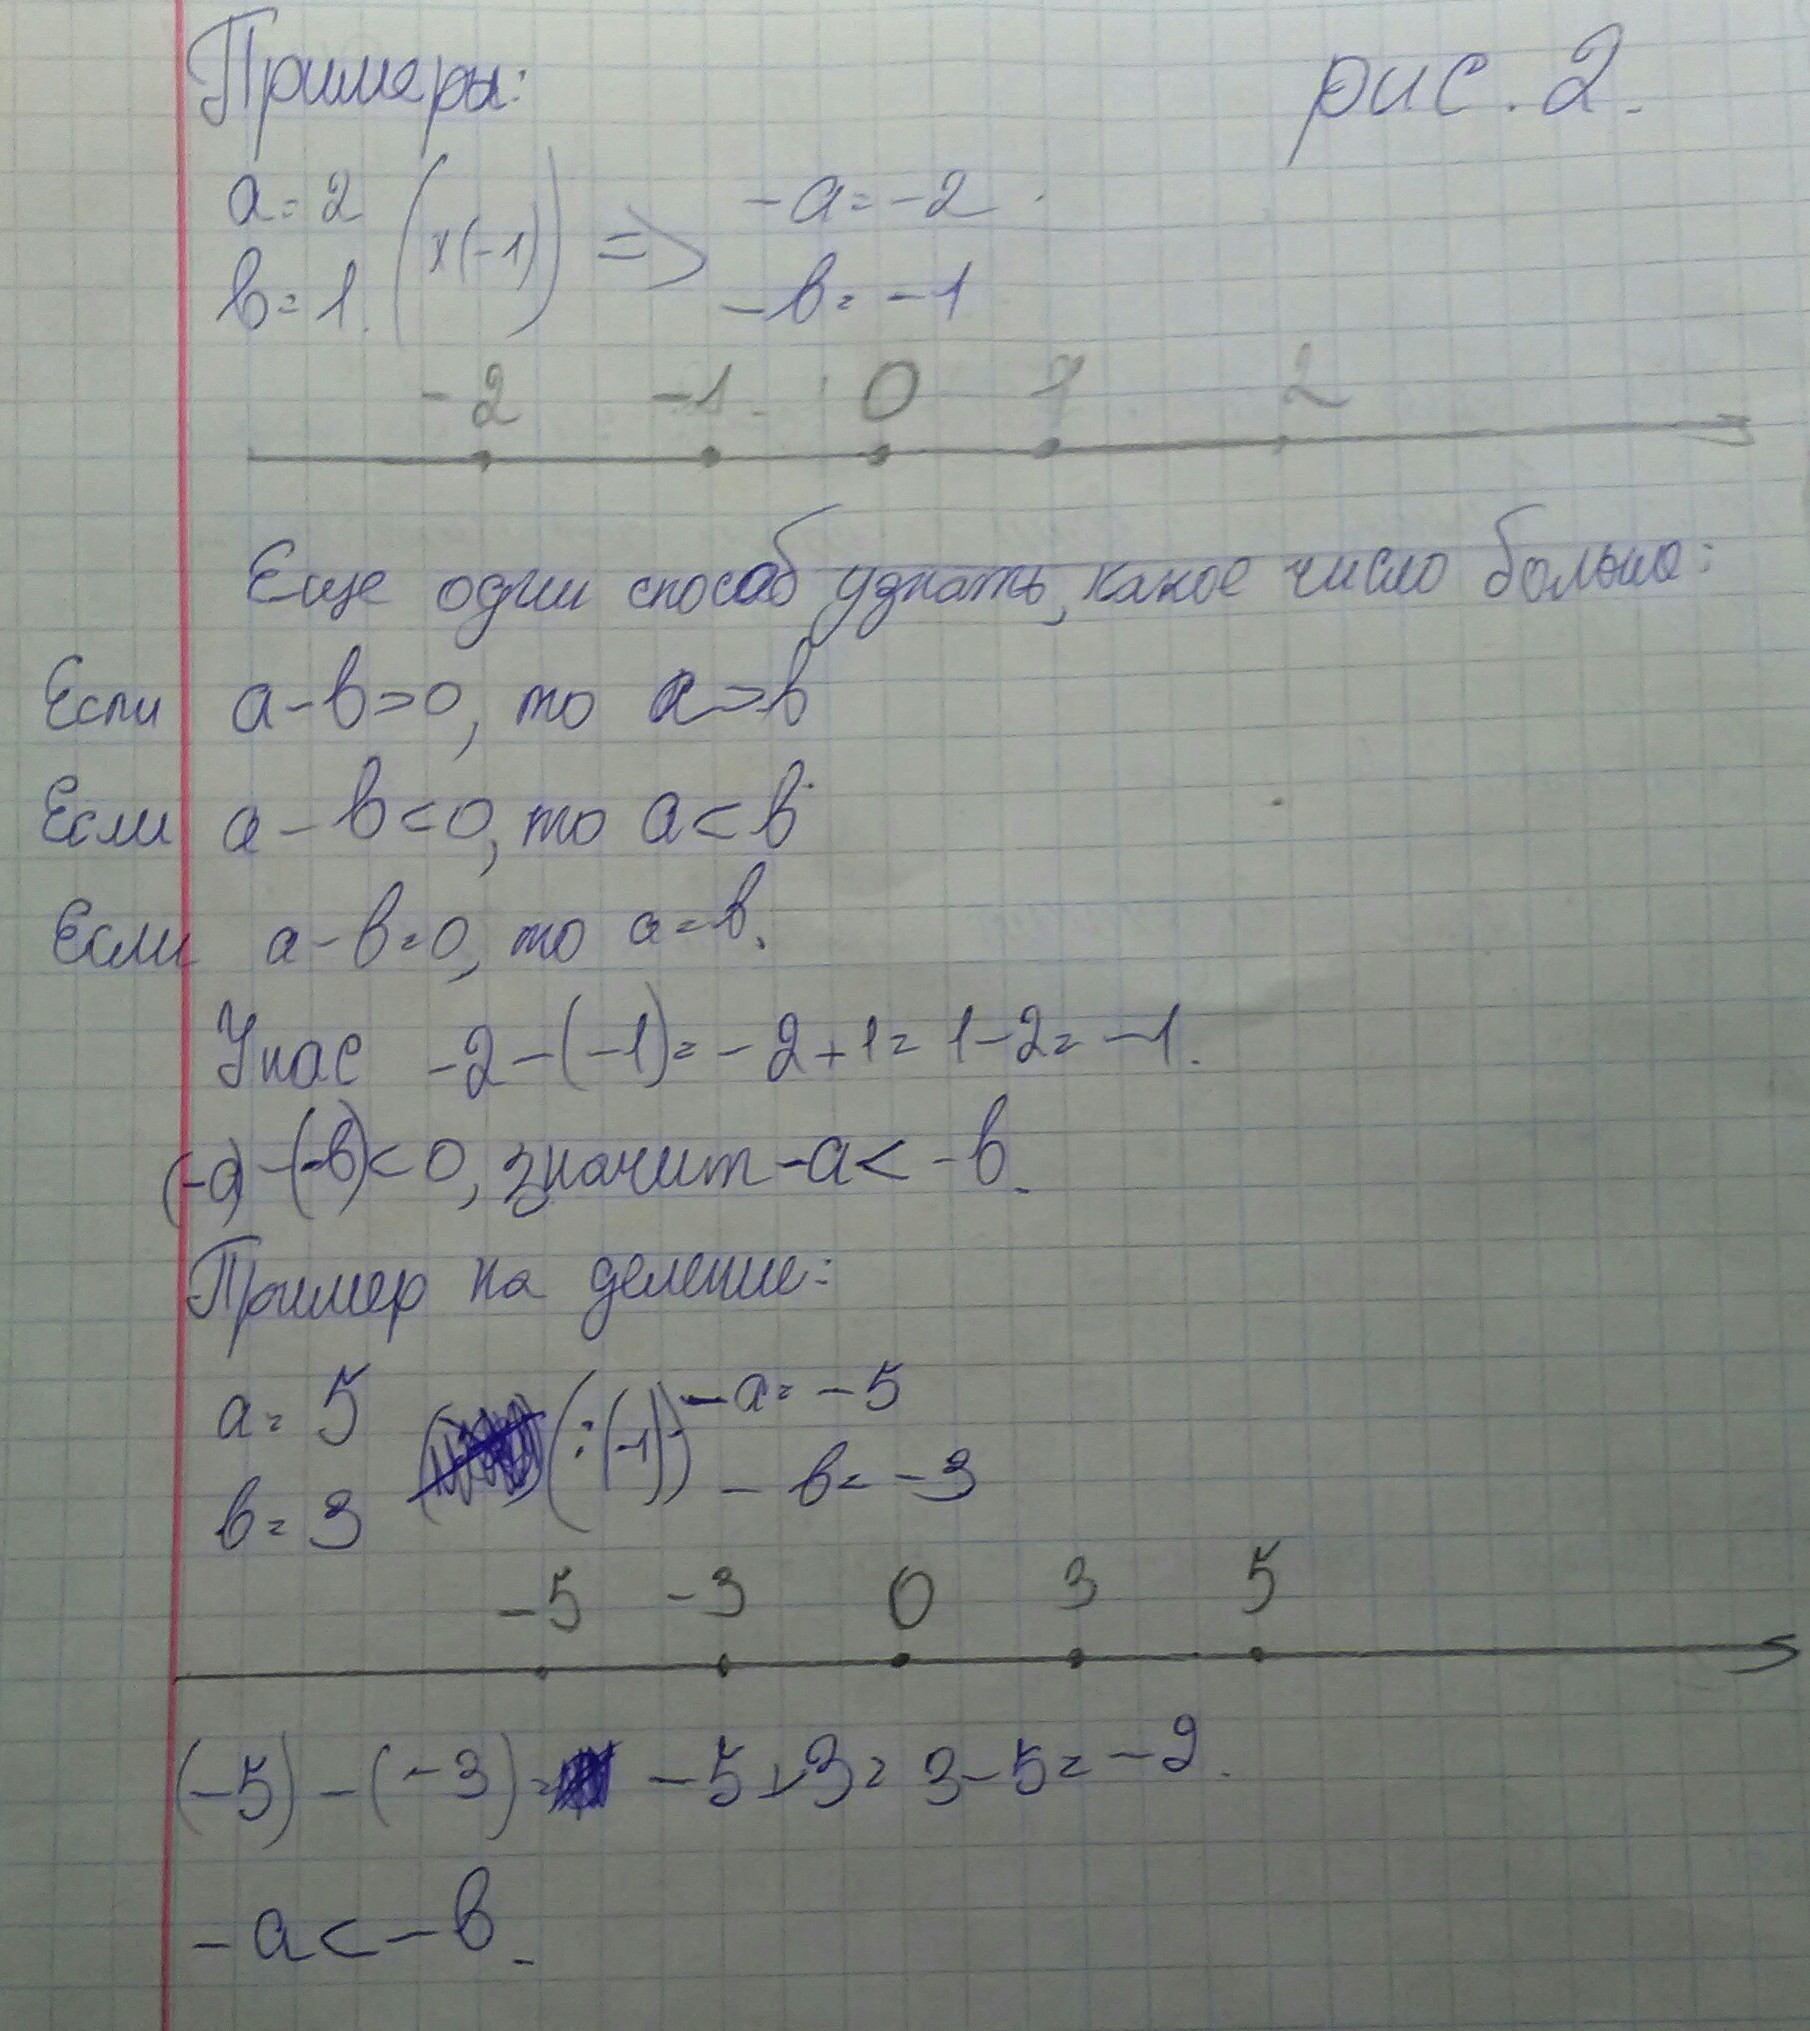 Примеры:
рис. 2.
a = 2 (x(-1)) => -a = -2
b = 1. -b = -1
-2 -1 0 1 2
Еще один способ узнать, какое число больше:
Если a - b > 0, то a > b
Если a - b < 0, то a < b
Если a - b = 0, то a = b.
У нас -2 - (-1) = -2 + 1 = 1 - 2 = -1.
(-a) - (-b) < 0, значит -a < -b.
Пример на деление:
a = 5 (:(-1)) -a = -5
b = 3 -b = -3
-5 -3 0 3 5
(-5) - (-3) = -5 + 3 = 3 - 5 = -2.
-a < -b.